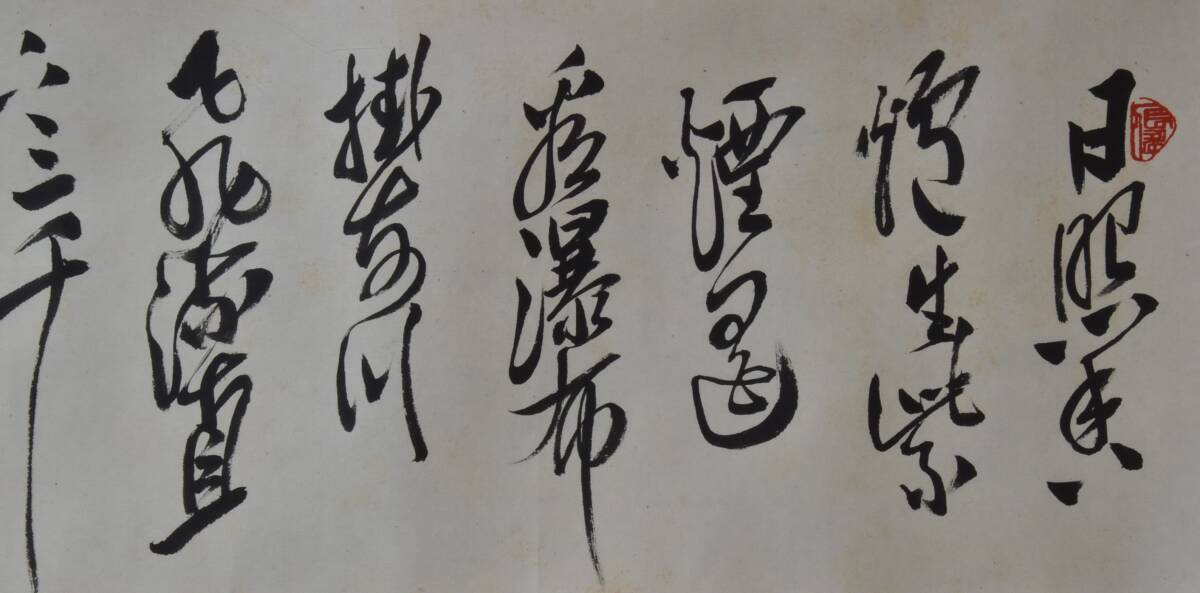 日照香
爐生紫
煙遥
看瀑布
掛前川
飛流直
下三千